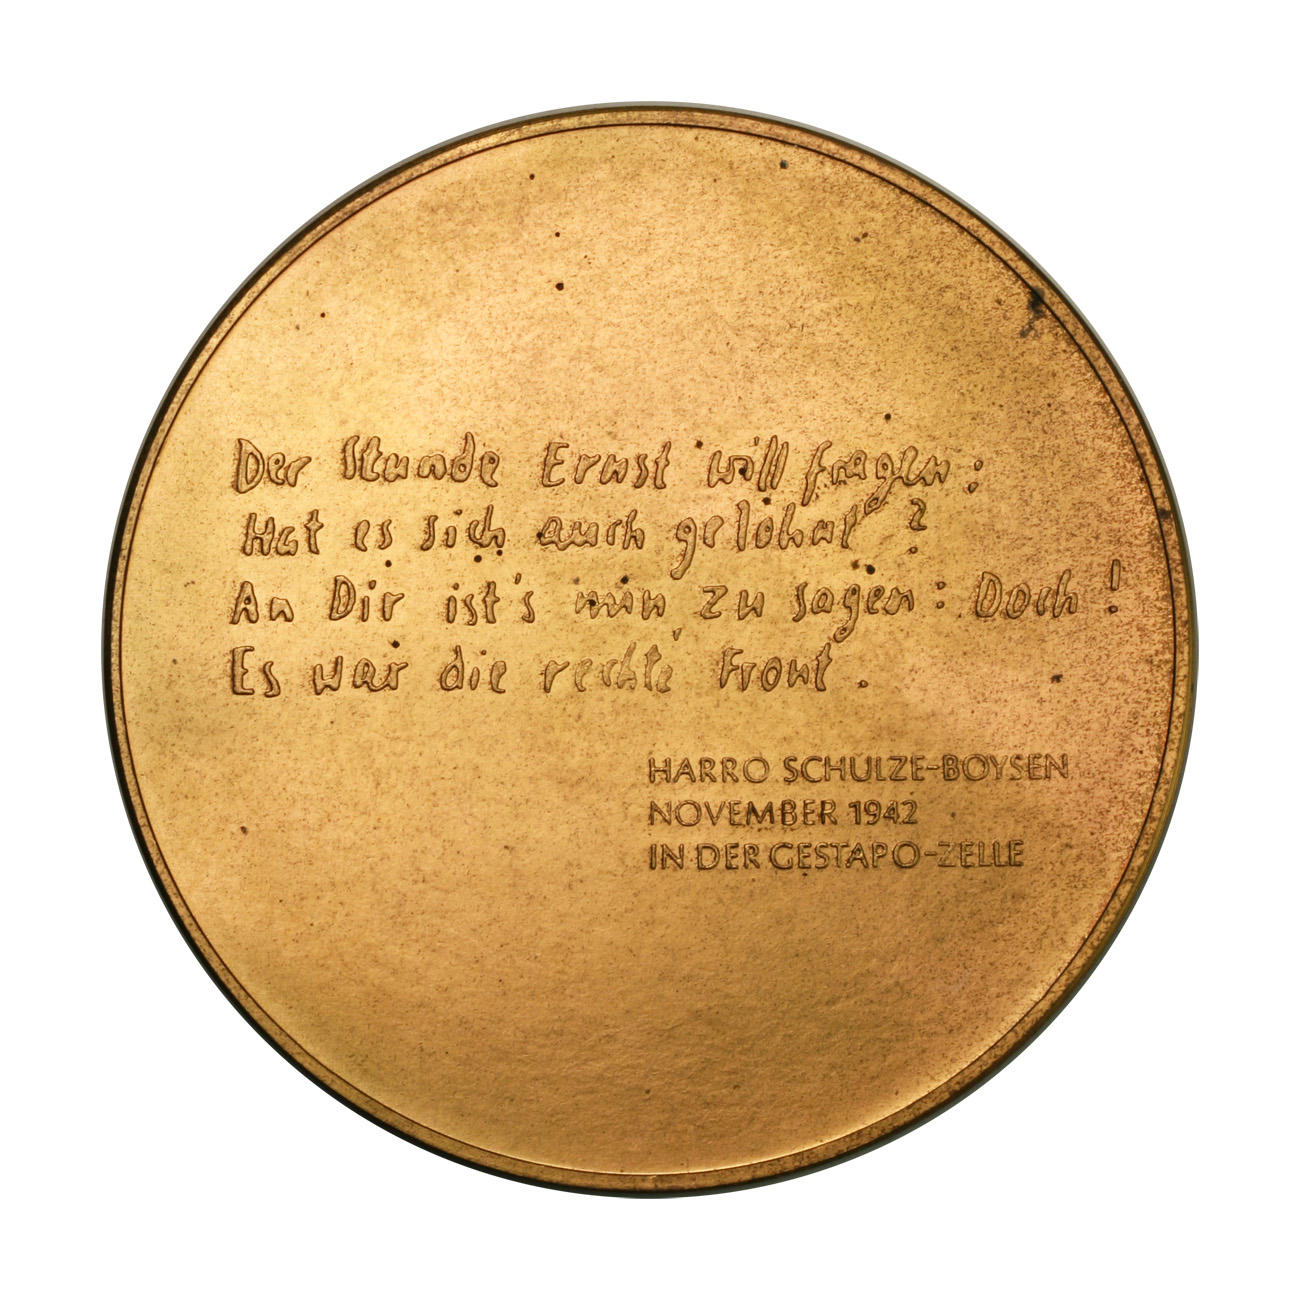 Der Stunde Ernst will fragen:
Hat es sich auch gelohnt?
An Dir ist's nun zu sagen: Doch!
Es war die rechte Front.
HARRO SCHULZE-BOYSEN
NOVEMBER 1942
IN DER GESTAPO-ZELLE